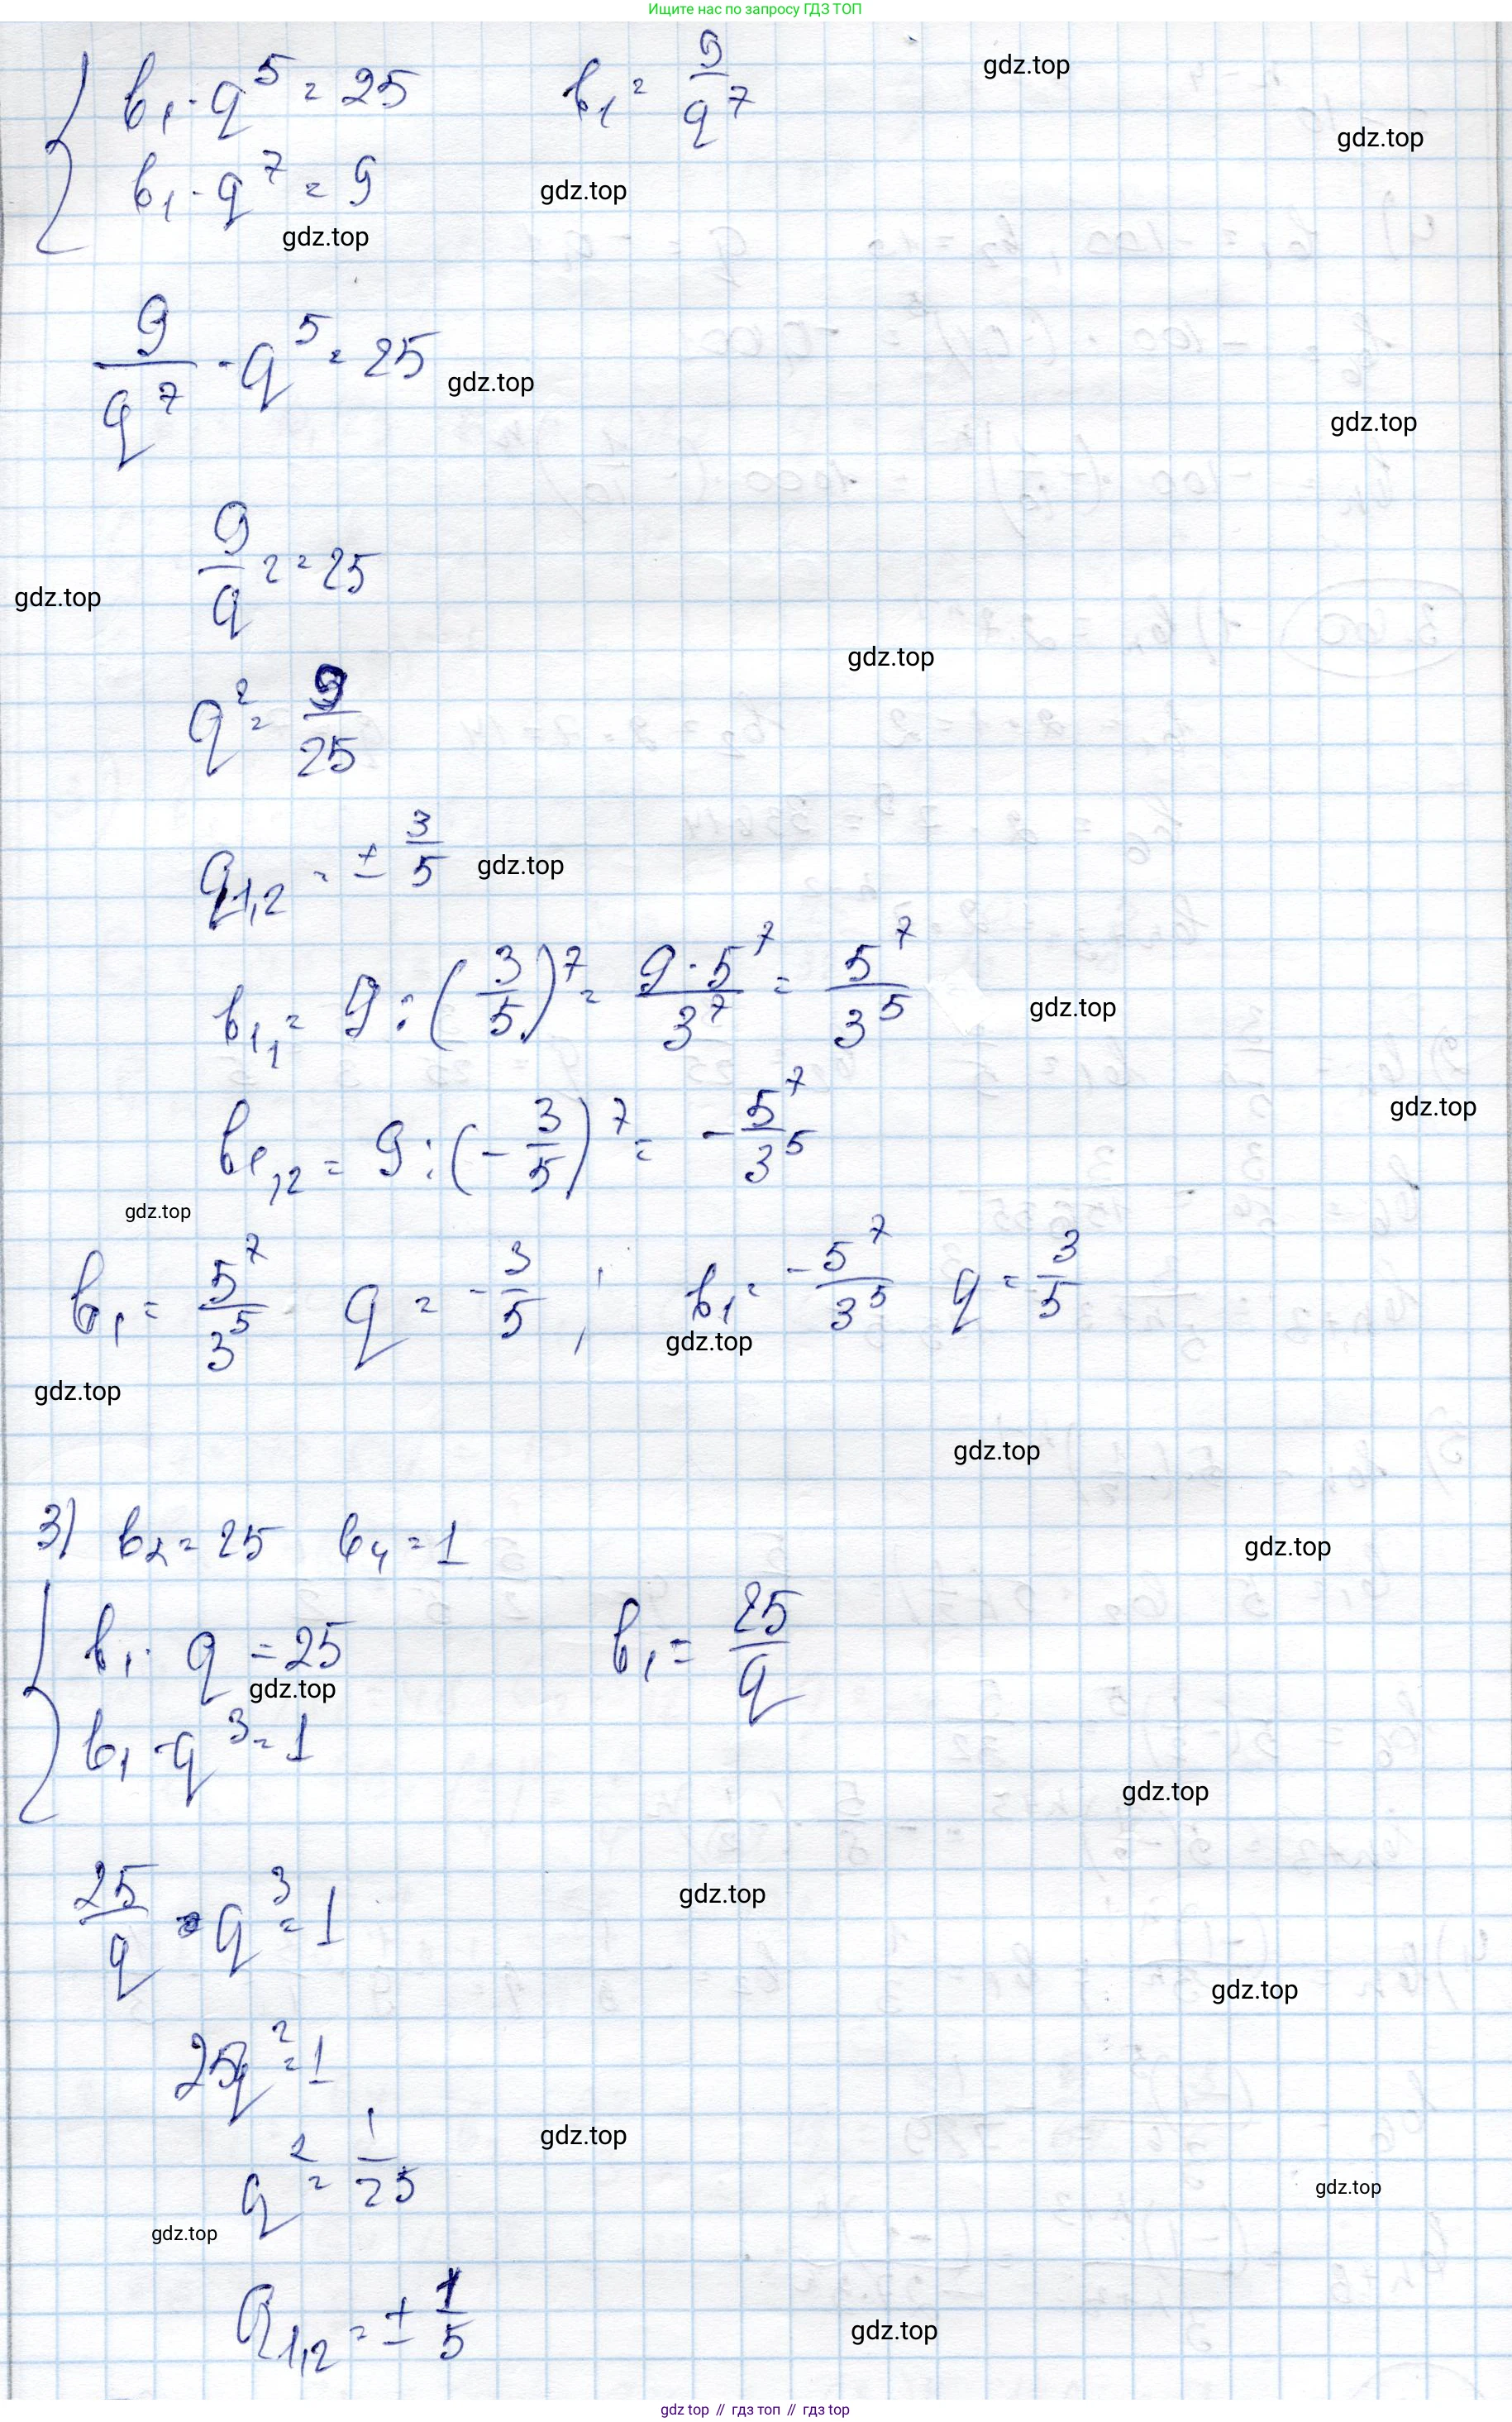 Ищите нас по запросу ГДЗ ТОП
{ b₁ · q⁵ = 25     b₁ = 9/q⁷
gdz.top
gdz.top
b₁ · q⁷ = 9
gdz.top
gdz.top
9/q⁷ · q⁵ = 25
gdz.top
gdz.top
9/q² = 25
gdz.top
gdz.top
q² = 9/25
q₁,₂ = ± 3/5
gdz.top
b₁₁ = 9 : (3/5)⁷ = 9·5⁷/3⁷ = 5⁷/3⁵
gdz.top
gdz.top
b₁,₂ = 9 : (-3/5)⁷ = -5⁷/3⁵
gdz.top
b₁ = 5⁷/3⁵   q = -3/5 ;   b₁ = -5⁷/3⁵   q = 3/5
gdz.top
gdz.top
gdz.top
3) b₂ = 25   b₄ = 1
gdz.top
{ b₁ · q = 25     b₁ = 25/q
gdz.top
b₁ · q³ = 1
gdz.top
25/q · q³ = 1
gdz.top
gdz.top
25q² = 1
gdz.top
q² = 1/25
gdz.top
gdz.top
q₁,₂ = ± 1/5
gdz.top
gdz top // гдз топ // гдз top